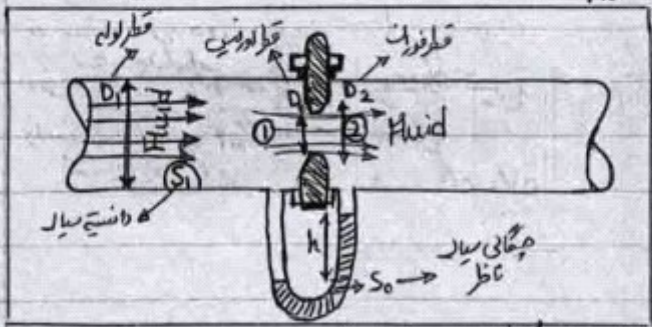 قطر لوله
قطر اورفیس
قطر فوران
D₁
D
D₂
Fluid
①
②
Fluid
S₁
دانسیته سیال
h
S₀
چگالی سیال
ناظر